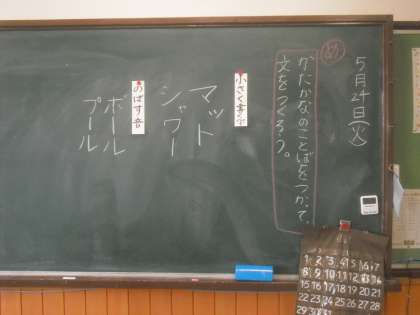 5月24日(火)
め
かたかなのことばをつかって、
文をつくろう。
小さく書く字
マット
シャワー
のばす音
ボール
プール
1 2 3 4 5 6 7
8 9 10 11 12 13 14
15 16 17 18 19 20 21
22 23 24 25 26 27 28
29 30 31